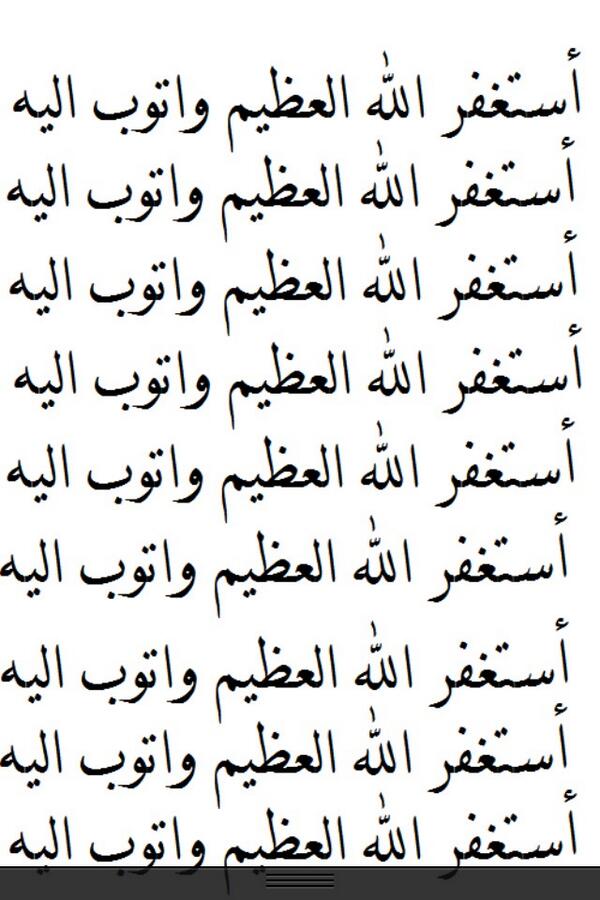 أستغفر الله العظيم واتوب اليه
أستغفر الله العظيم واتوب اليه
أستغفر الله العظيم واتوب اليه
أستغفر الله العظيم واتوب اليه
أستغفر الله العظيم واتوب اليه
أستغفر الله العظيم واتوب اليه
أستغفر الله العظيم واتوب اليه
أستغفر الله العظيم واتوب اليه
أستغفر الله العظيم واتوب اليه